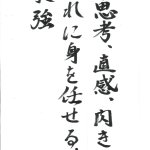 思考、直感、閃き
れに身を任せる、
強